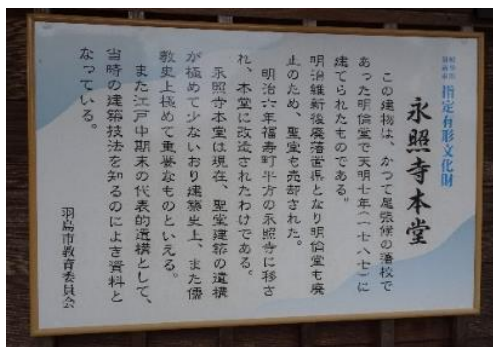 岐阜県
羽島市
指定有形文化財
永照寺本堂
この建物は、かつて尾張候の藩校で
あった明倫堂で天明七年(一七八七)に
建てられたものである。
明治維新後廃藩置県となり明倫堂も廃
止のため、聖堂も売却された。
明治六年福寿町平方の永照寺に移さ
れ、本堂に改造されたわけである。
永照寺本堂は現在、聖堂建築の遺構
が極めて少ないおり建築史上、また儒
教史上極めて重要なものといえる。
また江戸中期末の代表的遺構として、
当時の建築技法を知るのによき資料と
なっている。
羽島市教育委員会